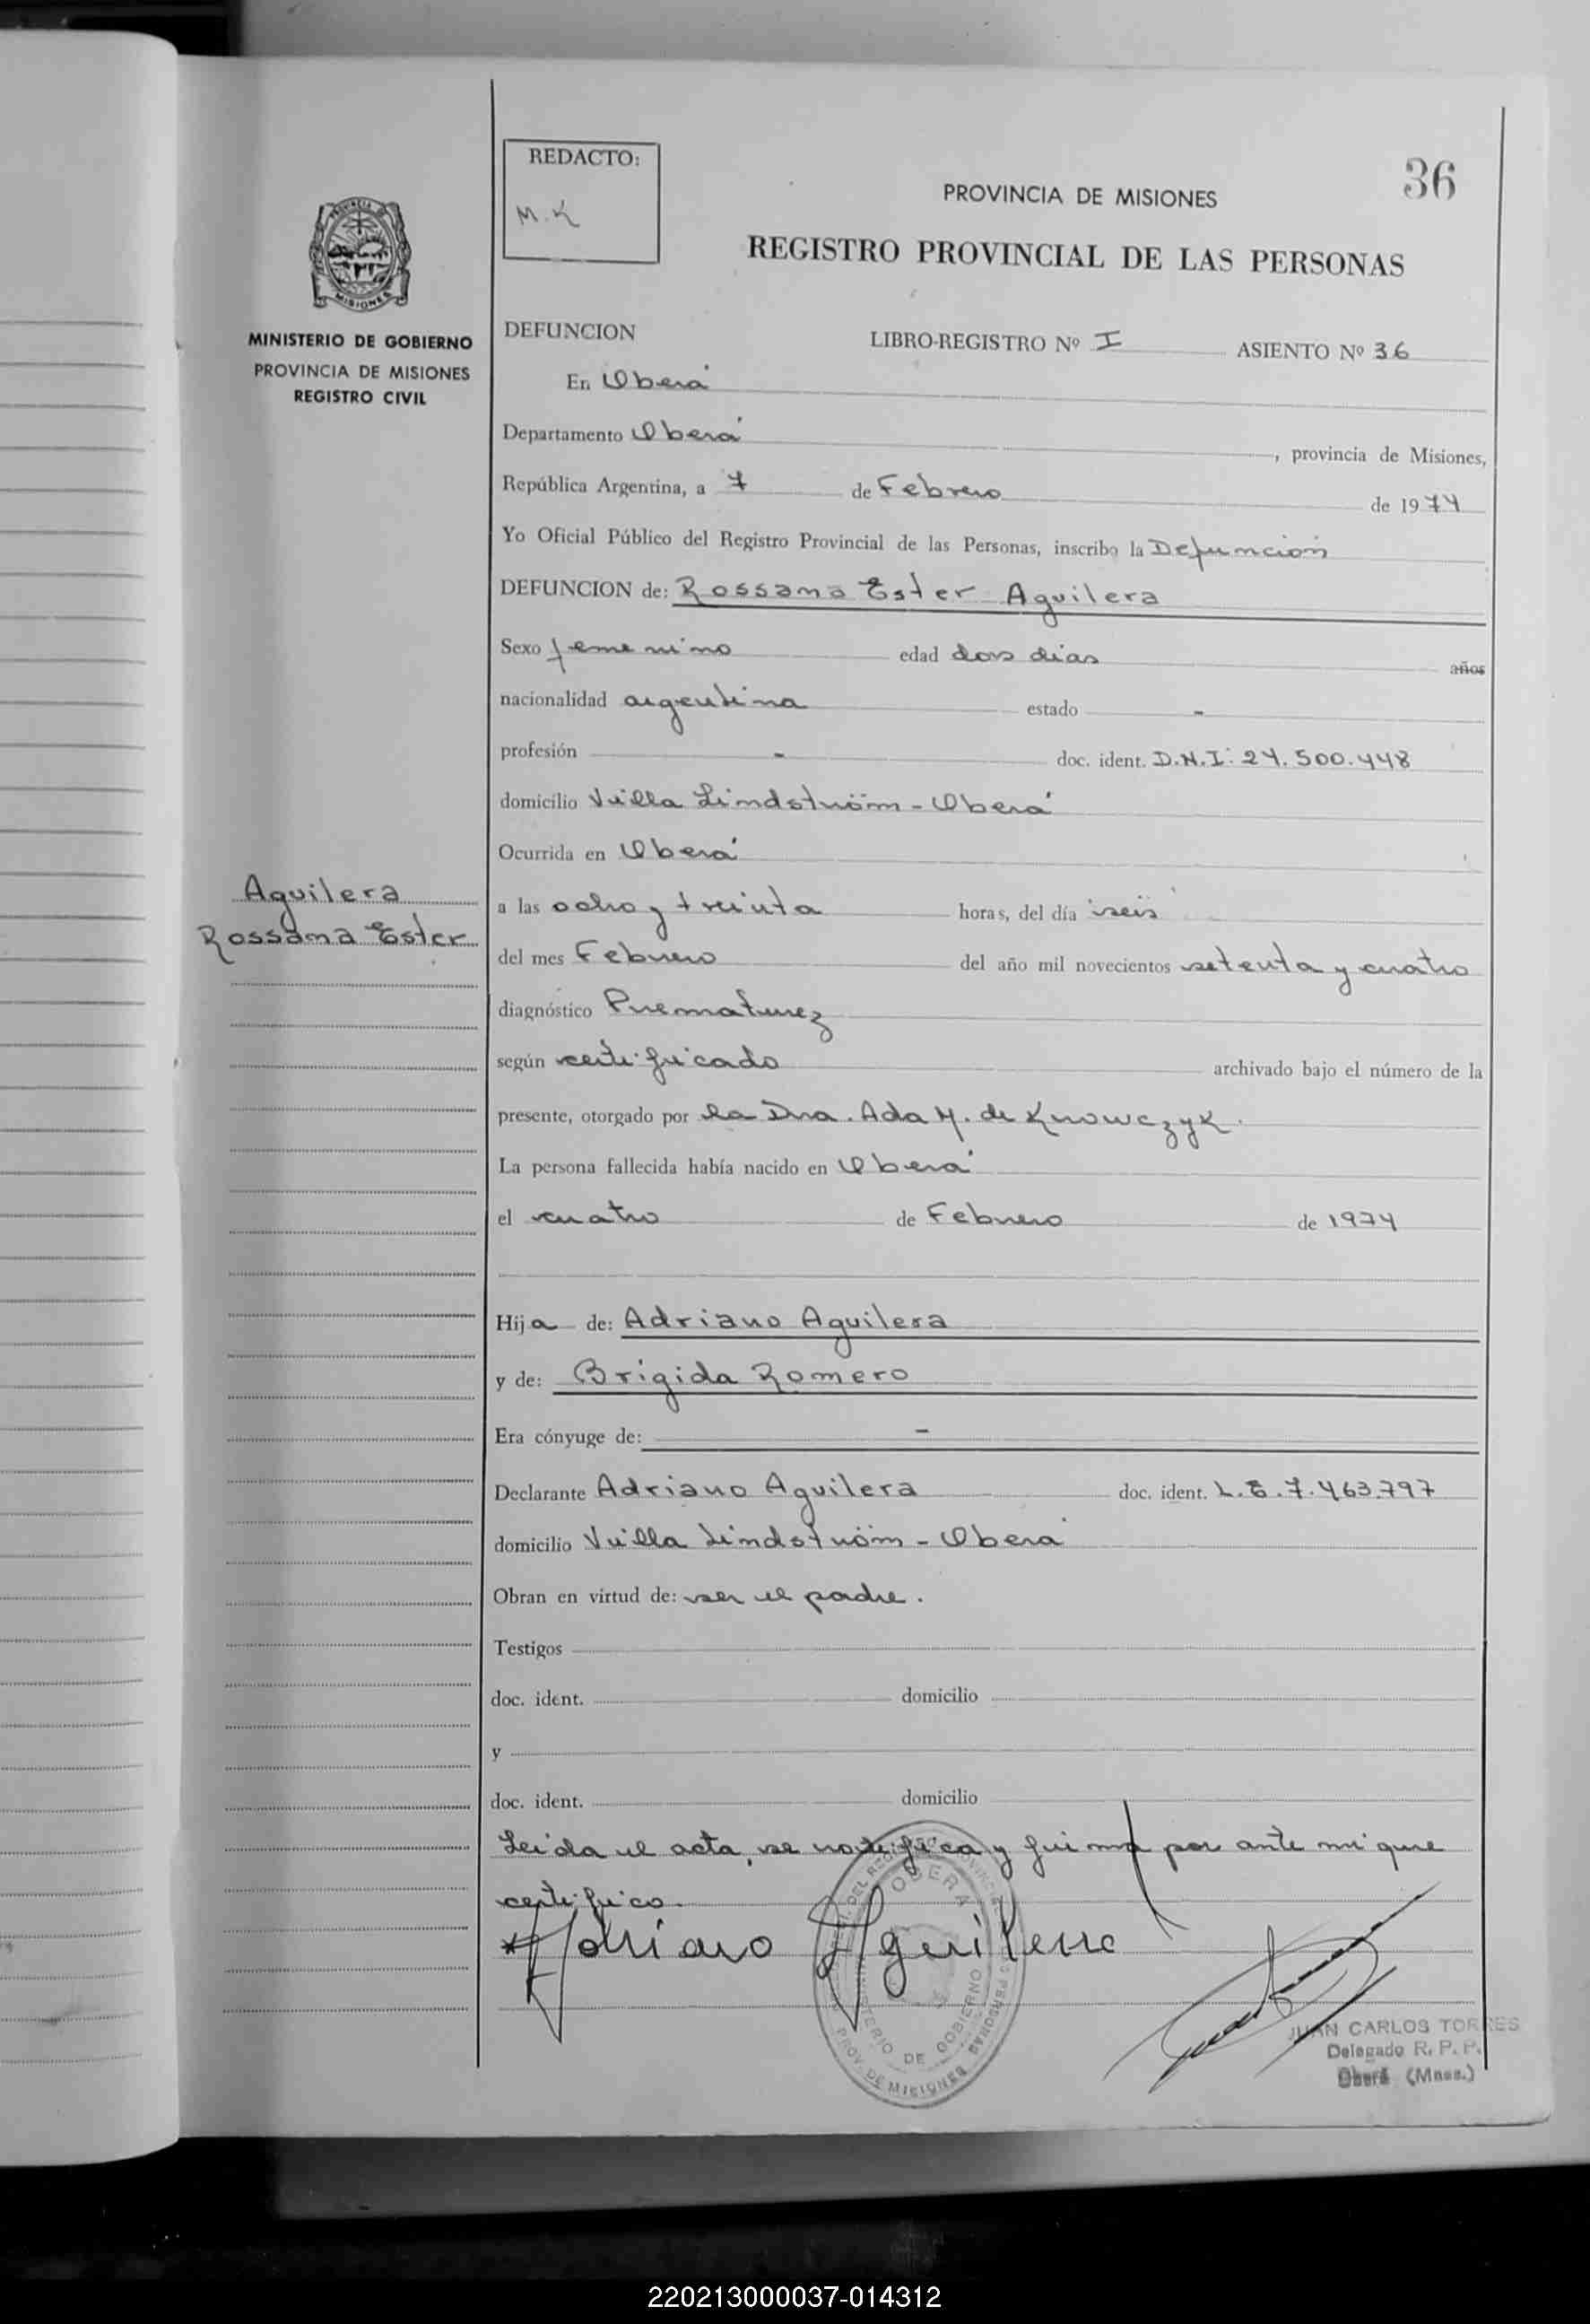 36
REDACTO:
M.K
PROVINCIA DE MISIONES
REGISTRO PROVINCIAL DE LAS PERSONAS
PROVINCIA DE
MISIONES
MINISTERIO DE GOBIERNO
PROVINCIA DE MISIONES
REGISTRO CIVIL
DEFUNCION LIBRO-REGISTRO Nº I ASIENTO Nº 36
En Oberá
Departamento Oberá, provincia de Misiones,
República Argentina, a 7 de Febrero de 1974
Yo Oficial Público del Registro Provincial de las Personas, inscribo la Defunción
DEFUNCION de: Rossana Ester Aguilera
Sexo femenino edad dos días años
nacionalidad argentina estado -
profesión - doc. ident. D.N.I: 24.500.448
domicilio Villa Lindström - Oberá
Ocurrida en Oberá
Aguilera
Rossana Ester
a las ocho y treinta horas, del día seis
del mes Febrero del año mil novecientos setenta y cuatro
diagnóstico Prematurez
según certificado archivado bajo el número de la
presente, otorgado por la Dra. Ada M. de Krowczyk.
La persona fallecida había nacido en Oberá
el cuatro de Febrero de 1974
Hija de: Adriano Aguilera
y de: Brigida Romero
Era cónyuge de: -
Declarante Adriano Aguilera doc. ident. L.E.7.463.797
domicilio Villa Lindström - Oberá
Obran en virtud de: ser el padre.
Testigos
doc. ident. domicilio
y
doc. ident. domicilio
Leida el acta, se notifica y firma por ante mi que
certifico.
Adriano Aguilera
OBERA
MINISTERIO DE GOBIERNO
PROV. DE MISIONES
JUAN CARLOS TORRES
Delegado R. P. P.
Oberá (Mnes.)
220213000037-014312